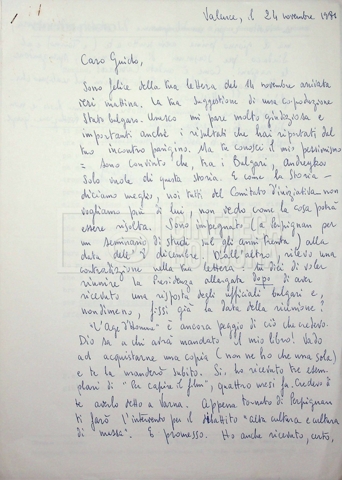 Valence, il 24 novembre 1991
Caro Guido,
Sono felice della tua lettera del 14 novembre arrivata
ieri mattina. La tua suggestione di una coproduzione
Stato bulgaro-Unesco mi pare molto giudiziosa e
importanti anche i risultati che hai riportati del
tuo incontro parigino. Ma tu conosci il mio pessimismo
= sono convinto che, tra i Bulgari, Andreykov
solo vuole di questa storia. E come la Storia -
diciamo meglio, noi tutti del Comitato d'iniziativa - non
vogliamo più di lui, non vedo come la cosa potrà
essere risolta. Sono impegnato (a Perpignan per
un seminario di studi sul gli anni Trenta) alla
data dell'8 dicembre. D'all'altro, rilevo una
contradizione nella tua lettera = tu dici di voler
riunire la Presidenza allargata dopo di aver
ricevuto una risposta degli ufficiali bulgari e,
nondimeno, fissi già la data della riunione!
"L'Age d'Homme" è ancora peggio di ciò che credevo.
Dio sa a chi avrai mandato il mio libro! Vado
ad acquistarne una copia (non ne ho che una sola)
e te la manderò subito. Si, ho ricevuto tre esem-
plari di "Per capire il film", quattro mesi fa. Credevo di
te averlo detto a Varna. Appena tornato di Perpignan
ti farò l'intervento per il dibattito "alta cultura e cultura
di massa". È promesso. Ho anche ricevuto, certo,